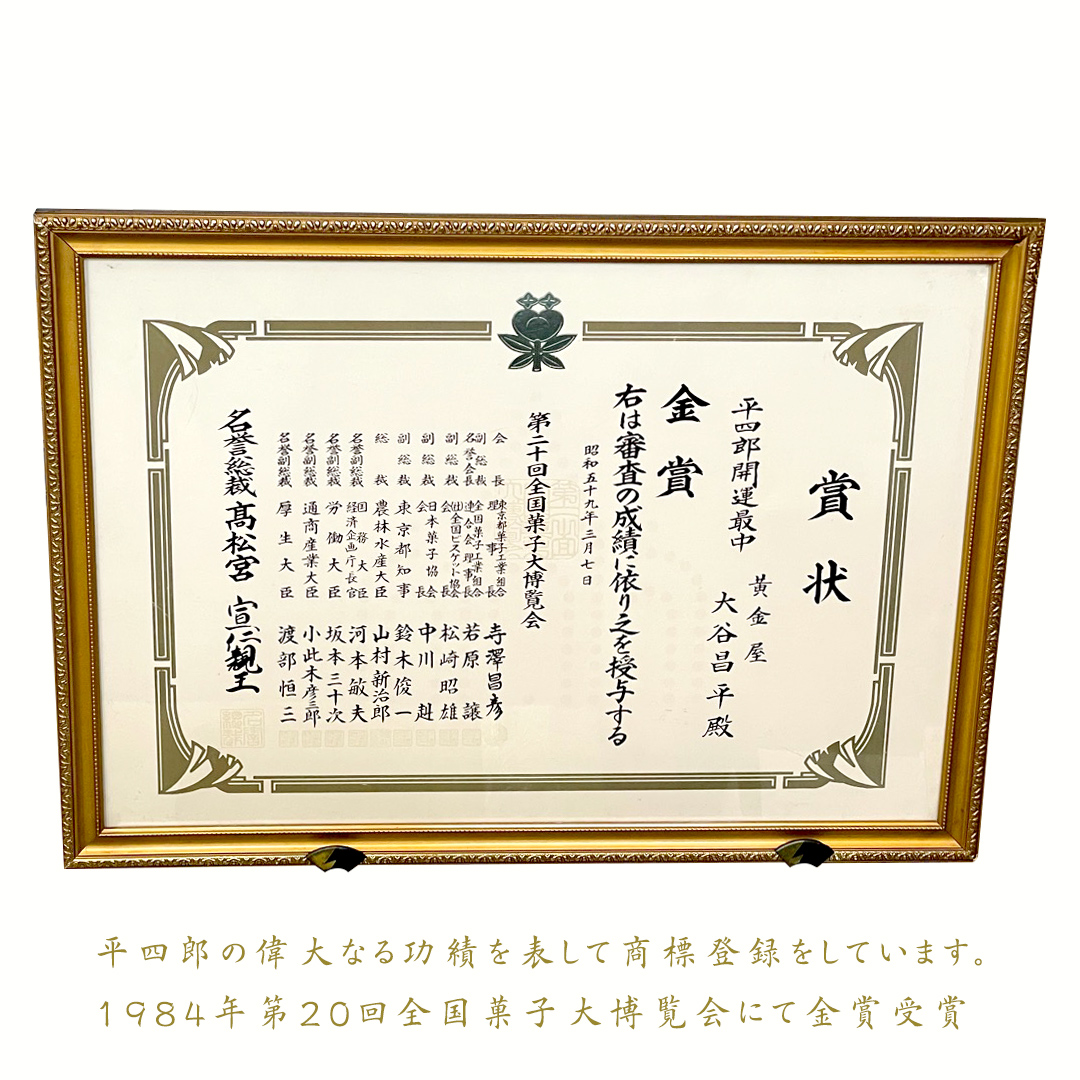 賞状
平四郎開運最中
黄金屋
大谷昌平殿
金賞
右は審査の成績に依り之を授与する
昭和五十九年三月七日
第二十回全国菓子大博覧会
会長 東京都菓子工業組合理事長 寺澤昌彦
副総裁 名誉会長 全国菓子工業組合連合会理事長 若原譲
副総裁 (社)全国ビスケット協会会長 松崎昭雄
副総裁 日本菓子協会会長 中川赳
副総裁 東京都知事 鈴木俊一
総裁 農林水産大臣 山村新治郎
名誉副総裁 国務大臣 経済企画庁長官 河本敏夫
名誉副総裁 労働大臣 坂本三十次
名誉副総裁 通商産業大臣 小此木彦三郎
名誉副総裁 厚生大臣 渡部恒三
名誉総裁 高松宮 宣仁親王
平四郎の偉大なる功績を表して商標登録をしています。
1984年第20回全国菓子大博覧会にて金賞受賞